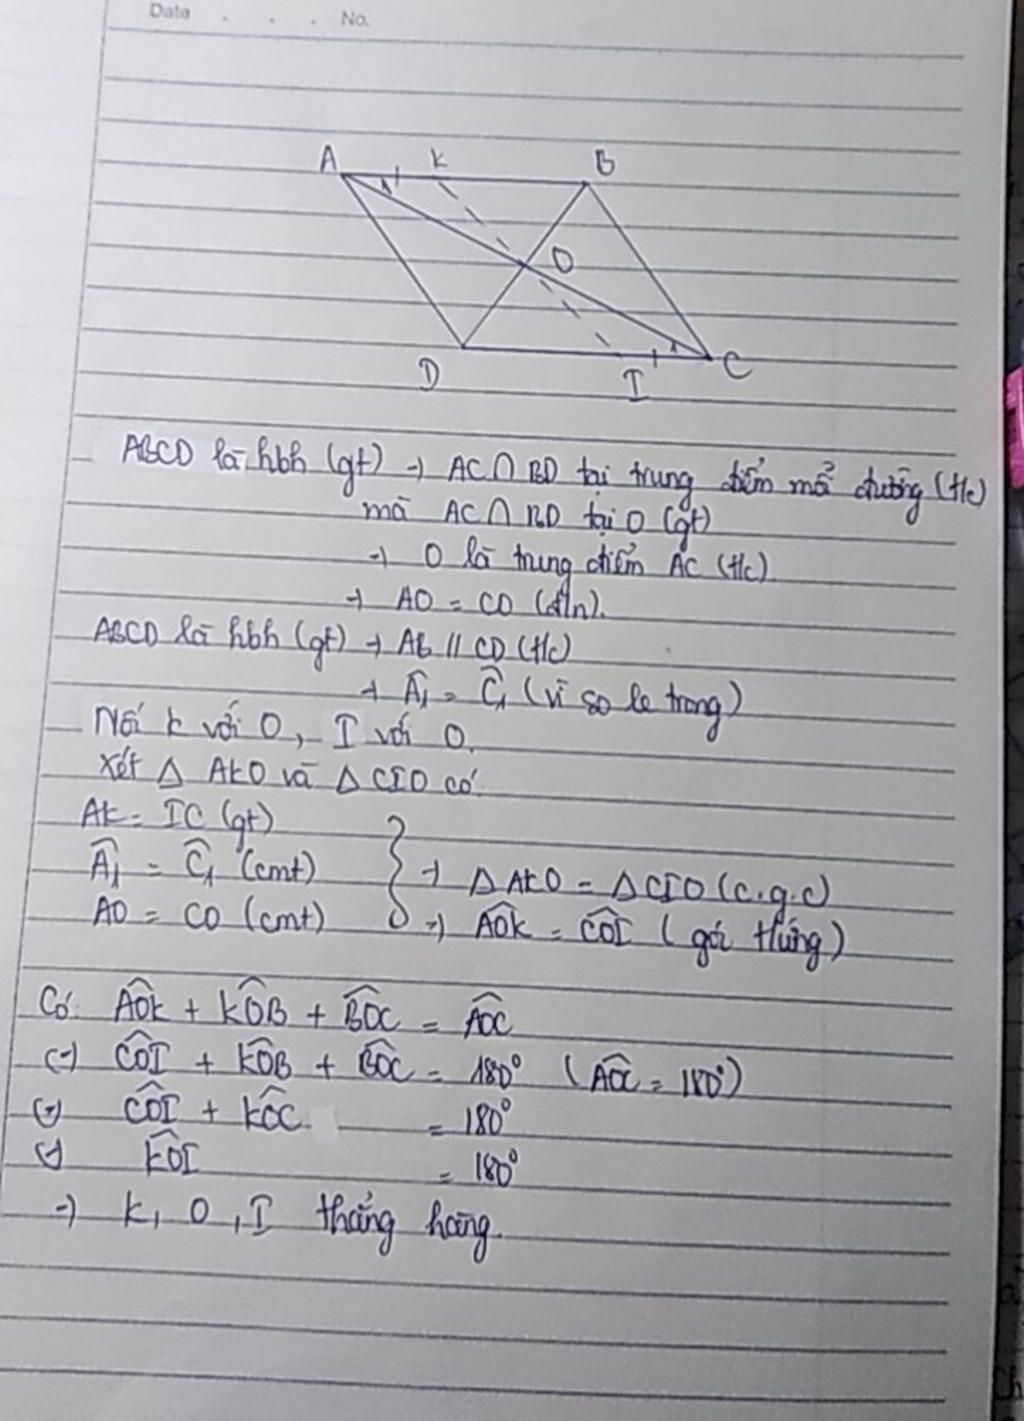 Date . . . No.
A K B
O
D I C
ABCD là hbh (gt) → AC ∩ BD tại trung điểm mỗi đường (t/c)
mà AC ∩ BD tại O (gt)
→ O là trung điểm AC (t/c)
→ AO = CO (đ/n).
ABCD là hbh (gt) → AB // CD (t/c)
→ Â₁ = Ĉ₁ (vì so le trong)
Nối K với O, I với O.
Xét Δ AKO và Δ CIO có:
AK = IC (gt)
Â₁ = Ĉ₁ (cmt) } → Δ AKO = Δ CIO (c.g.c)
AO = CO (cmt) → AÔK = CÔI (góc t/ứng)
Có: AÔK + KÔB + BÔC = AÔC
(=) CÔI + KÔB + BÔC = 180° (AÔC = 180°)
(=) CÔI + KÔC = 180°
(=) KÔI = 180°
=) K, O, I thẳng hàng.